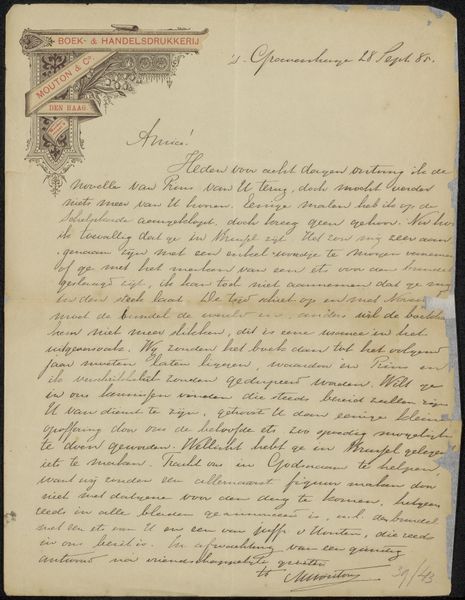 BOEK- & HANDELSDRUKKERIJ
MOUTON & Co.
DEN HAAG.
's Gravenhage 28 Sept. 85.
Amice!
Heden voor acht dagen ontving ik de
novelle van Prins van U terug, doch mocht verder
niets meer van U hooren. Eenige malen heb ik op de
aangeklopt, doch kreeg geen gehoor. Nu hoor
ik toevallig dat ge in Brussel zijt. Het zou mij zeer aan-
genaam zijn met een enkel woordje te mogen vernemen
of ge met het maken van een ets voor den bundel
geslaagd zijt, ik kan toch niet aannemen dat ge mij
in den steek laat. De tijd schiet op en met
moet de bundel de wereld in, anders wil de boekhan
hem niet meer slikken, dit is eene usance in het
uitgeversvak. Wij zouden het boek dan tot het volgend
jaar moeten laten liggen, waardoor en Prins en
ik verschrikkelijk zouden gedupeerd worden. Wilt ge
in ons kennissen vinden die steeds bereid zullen zijn
U van dienst te zijn, getroost U dan eenige kleine
opoffering door ons de beloofde ets zoo spoedig mogelijk
te doen geworden. Wellicht hebt ge in Brussel gelegenh
iets te maken. Tracht ons in Godsnaam te helpen,
want wij zouden een allernaarst figuur maken door
niet met datgene voor den dag te komen, hetgeen
reeds in alle bladen geannonceerd is, n.l. den bundel
met een ets van U en een van juffr. v Houten, die reeds
in ons bezit is. In afwachting van een gunstig
antwoord na vriendschappelijke groeten
39/43